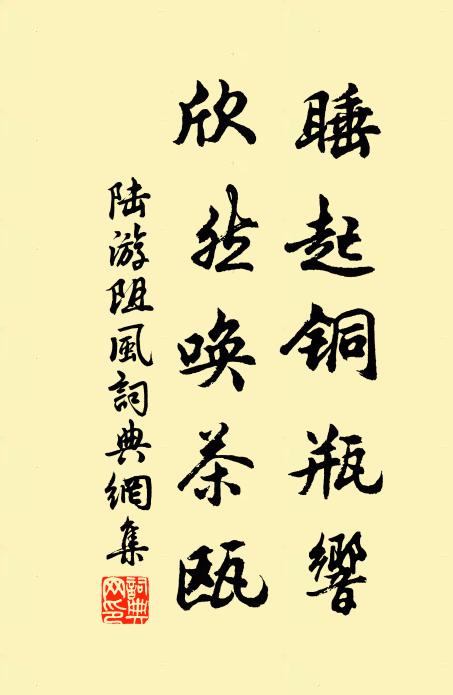 睡起铜瓶響
欣然唤茶瓯
陆游阻風詞典網集
詞典网印